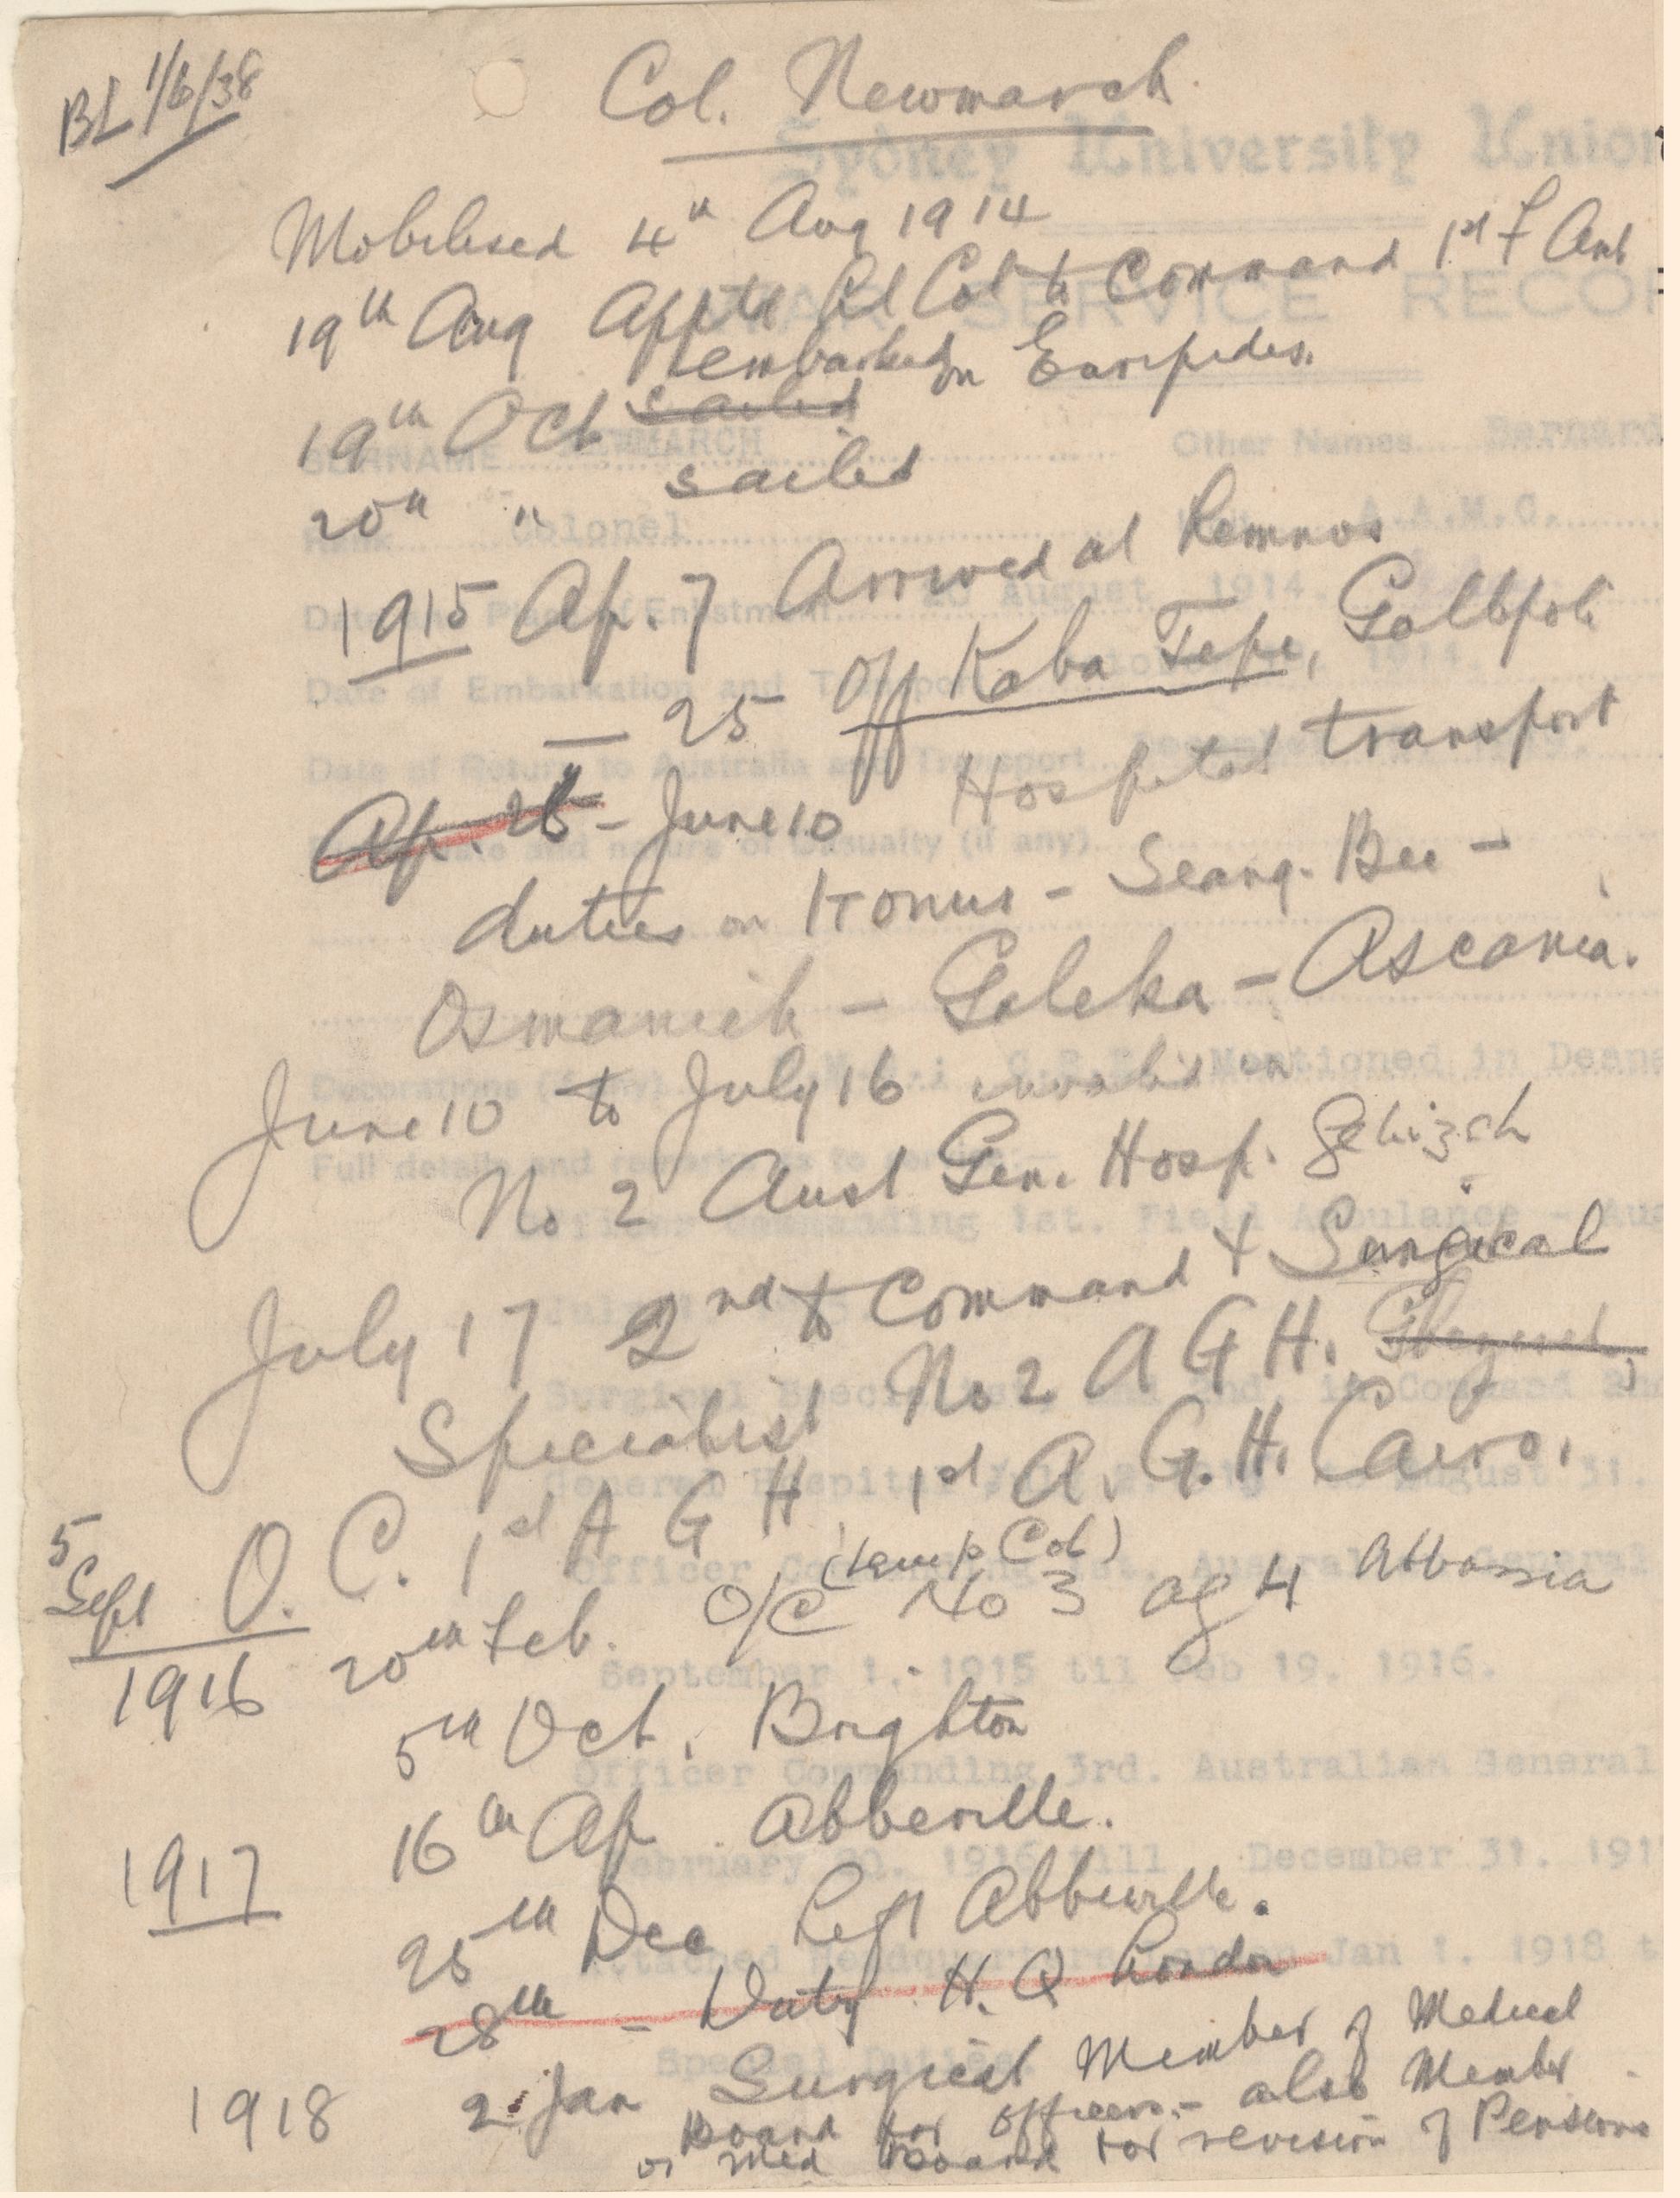 BL 1/6/38
Col. Newmarch.
Mobilised 4th Aug 1914
19th Aug Appt'd Lt Col to Command 1st F Amb
embarked on Euripides.
19th Oct sailed
20th " sailed
1915 Ap. 7 Arrived at Lemnos
— 25 off Kaba Tepe, Gallipoli
Ap. 26 - June 10 Hospital transport
duties on Itonus - Seang. Bee -
Osmanieh - Galeka - Ascania.
June 10 to July 16 invalid in
No 2 Aust Gen. Hosp. Gehizeh
July 17 2nd to Command & Surgical
Specialist No 2 A G H.
5 Sept O. C. 1st A G H 1st A. G. H. Cairo.
(temp Col)
1916 20th Feb. O/C No 3 AGH Abbassia
5th Oct. Brighton
1917 16th Ap. Abbeville.
25th Dec Left Abbeville.
28th - Duty H. Q London
1918 2 Jan Surgical Member of Medical
Board for officers - also Member
of Med Board for revision of Pensions
Sydney University Union
WAR SERVICE RECOR
SURNAME NEWMARCH Other Names Bernard
Rank Colonel A.A.M.C.
Date and Place of Enlistment 20 August 1914.
Date of Embarkation and Transport 1914.
Date of Return to Australia and Transport
Date and nature of Casualty (if any)
Decorations (if any) Mentioned in
Full details and remarks as to service
Officer Commanding 1st. Field Ambulance - Aug
Surgical Specialist and 2nd. in Command 2nd
General Hospital August 31.
Officer Commanding 1st. Australian General
September 1. 1915 til Feb 19. 1916.
Officer Commanding 3rd. Australian General
February 20. 1916 till December 31. 191
Attached Headquarters London Jan 1. 1918 t
Special Duties